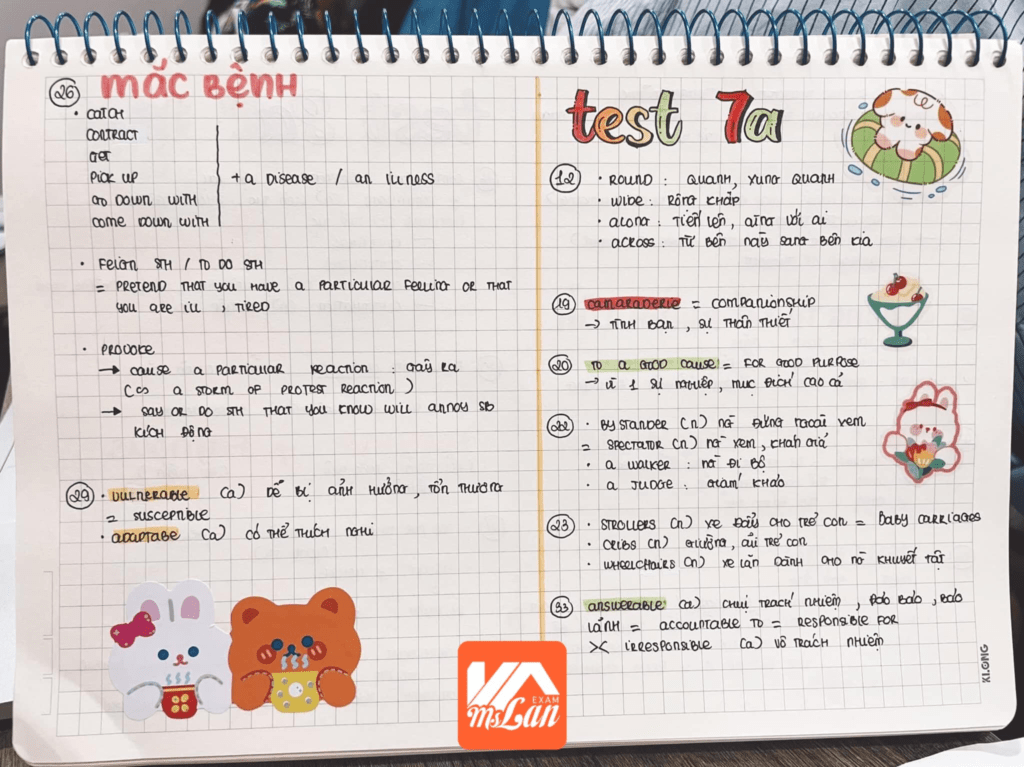 26 MẮC BỆNH
• CATCH
CONTRACT
GET
PICK UP
+ A DISEASE / AN ILLNESS
GO DOWN WITH
COME DOWN WITH
• FEIGN STH / TO DO STH
= PRETEND THAT YOU HAVE A PARTICULAR FEELING OR THAT
YOU ARE ILL, TIRED
• PROVOKE
→ CAUSE A PARTICULAR REACTION : GÂY RA
( A STORM OF PROTEST REACTION )
→ SAY OR DO STH THAT YOU KNOW WILL ANNOY SB
KÍCH ĐỘNG
29 • VULNERABLE (a) DỄ BỊ ẢNH HƯỞNG, TỔN THƯƠNG
= SUSCEPTIBLE
• ADAPTABE (a) CÓ THỂ THÍCH NGHI
test 7a
12 • ROUND : QUANH, XUNG QUANH
• WIDE : RỘNG KHẮP
• ALONG : TIẾN LÊN, CÙNG VỚI AI
• ACROSS : TỪ BÊN NÀY SANG BÊN KIA
19 CAMARADERIE = COMPANIONSHIP
→ TÌNH BẠN, SỰ THÂN THIẾT
20 TO A GOOD CAUSE = FOR GOOD PURPOSE
→ VÌ 1 SỰ NGHIỆP, MỤC ĐÍCH CAO CẢ
22 • BYSTANDER (n) NG̀ ĐỨNG NGOÀI XEM
= SPECTATOR (n) NG̀ XEM, KHÁN GIẢ
• A WALKER : NG̀ ĐI BỘ
• A JUDGE : GIÁM KHẢO
23 • STROLLERS (n) XE ĐẨY CHO TRẺ CON = BABY CARRIAGES
• CRIBS (n) GIƯỜNG, CŨI TRẺ CON
• WHEELCHAIRS (n) XE LĂN DÀNH CHO NG̀ KHUYẾT TẬT
33 ANSWERABLE (a) CHỊU TRÁCH NHIỆM, ĐẢM BẢO, BẢO
LÃNH = ACCOUNTABLE TO = RESPONSIBLE FOR
>< IRRESPONSIBLE (a) VÔ TRÁCH NHIỆM
KLONG
EXAM
MsLan